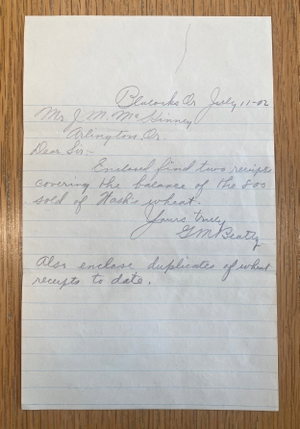 Blalocks Or July 11-02
Mr J. M. McKinney
Arlington Or.
Dear Sir:-
Enclosed find two receipts
covering the balance of the 800
sold of Nash's wheat.
Yours truly
G M Beatty
Also enclose duplicates of wheat
receipts to date.